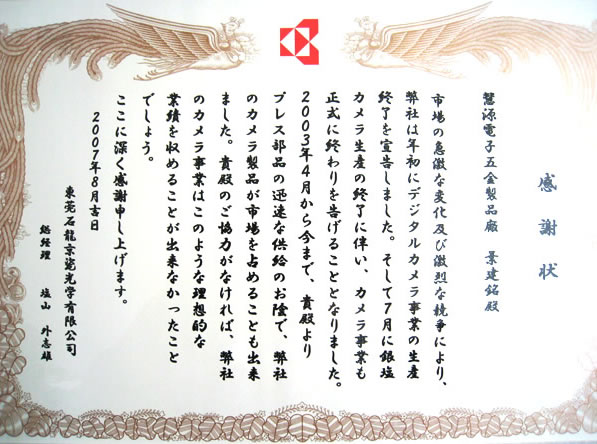 感謝状
慧源電子五金製品廠 景建銘殿
市場の急激な変化及び激烈な競争により、
弊社は年初にデジタルカメラ事業の生産
終了を宣告しました。そして7月に銀塩
カメラ生産の終了に伴い、カメラ事業も
正式に終わりを告げることとなりました。
2003年4月から今まで、貴殿より
プレス部品の迅速な供給のお陰で、弊社
のカメラ製品が市場を占めることも出来
ました。貴殿のご協力がなければ、弊社
のカメラ事業はこのような理想的な
業績を収めることが出来なかったこと
でしょう。
ここに深く感謝申し上げます。
2007年8月吉日
東莞石龍京瓷光学有限公司
総経理 塩山 外志雄